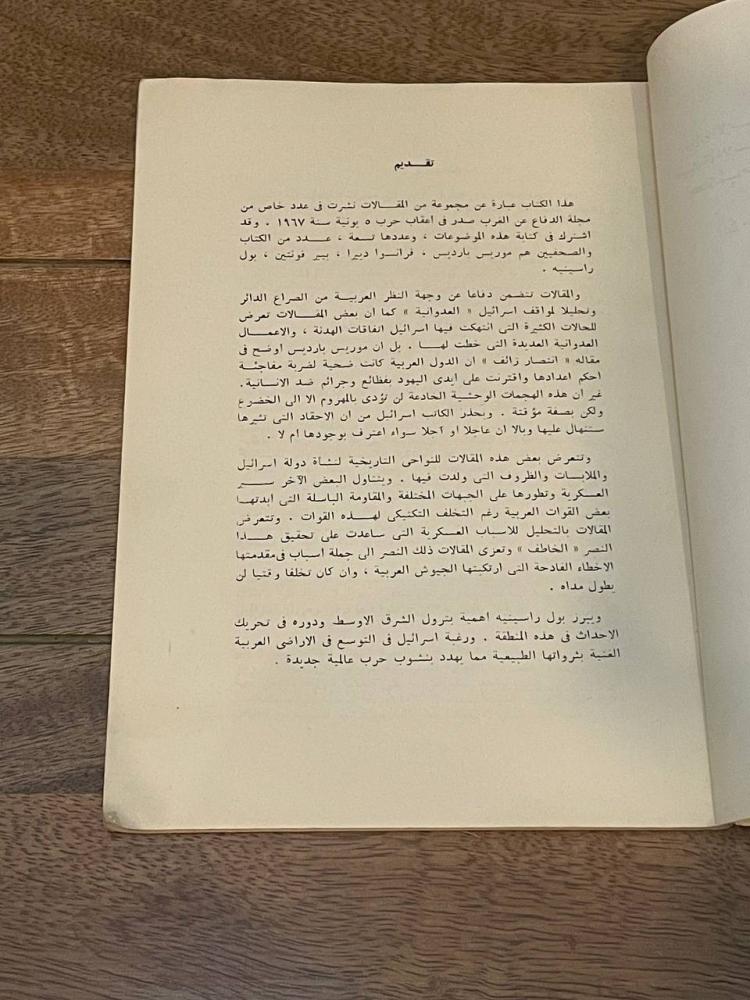 تقـــديم
هذا الكتاب عبارة عن مجموعة من المقـــالات نشرت فى عدد خاص من
مجلة الدفاع عن الغرب صدر فى أعقاب حرب ٥ يونية سنة ١٩٦٧ . وقد
اشترك فى كتابة هذه الموضوعات ، وعددها تسعة ، عـــدد من الكتاب
والصحفيين هم موريس بارديس ، فرانسوا دبيرا ، بيير فونتين ، بول
راسينيه .
والمقالات تتضمن دفاعا عن وجهة النظر العربيـــة من الصراع الدائر
وتحليلا لمواقف اسرائيل « العدوانية » كما ان بعض المقـــالات تعرض
للحالات الكثيرة التى انتهكت فيها اسرائيل اتفاقات الهدنة ، والاعمـــال
العدوانية العديدة التى خطت لهـــا . بل ان موريس بارديس أوضح فى
مقاله « انتصار زائف » ان الدول العربية كانت ضحية لضربة مفاجئـة
أحكم اعدادها واقترنت على أيدى اليهود بفظائع وجرائم ضد الانسانية.
غير ان هذه الهجمات الوحشية الخادعة لن تؤدى بالمهزوم الا الى الخضوع
ولكن بصفة مؤقتة . ويحذر الكاتب اسرائيل من ان الاحقاد التى تثيرها
ستنهال عليها وبالا ان عاجلا أو آجلا سواء اعترف بوجودها أم لا .
وتتعرض بعض هذه المقالات للنواحى التاريخية لنشأة دولة اسرائيل
والملابسات والظروف التى ولدت فيها . ويتناول البعض الآخر ســـير
العسكرية وتطورها على الجبهات المختلفة والمقاومة الباسلة التى أبدتهـا
بعض القوات العربية رغم التخلف التكنيكى لهـــذه القوات . وتتعرض
المقالات بالتحليل للاسباب العسكرية التى ساعدت على تحقيق هـــذا
النصر « الخاطف » وتعزى المقالات ذلك النصر الى جملة أسباب فى مقدمتها
الاخطاء الفادحة التى ارتكبتها الجيوش العربية ، وان كان تخلفا وقتيا لن
يطول مداه .
ويبرز بول راسينيه أهمية بترول الشرق الاوسط ودوره فى تحريك
الاحداث فى هذه المنطقة . ورغبة اسرائيل فى التوسع فى الاراضى العربية
الغنية بثرواتها الطبيعية مما يهدد بنشوب حرب عالمية جديدة .